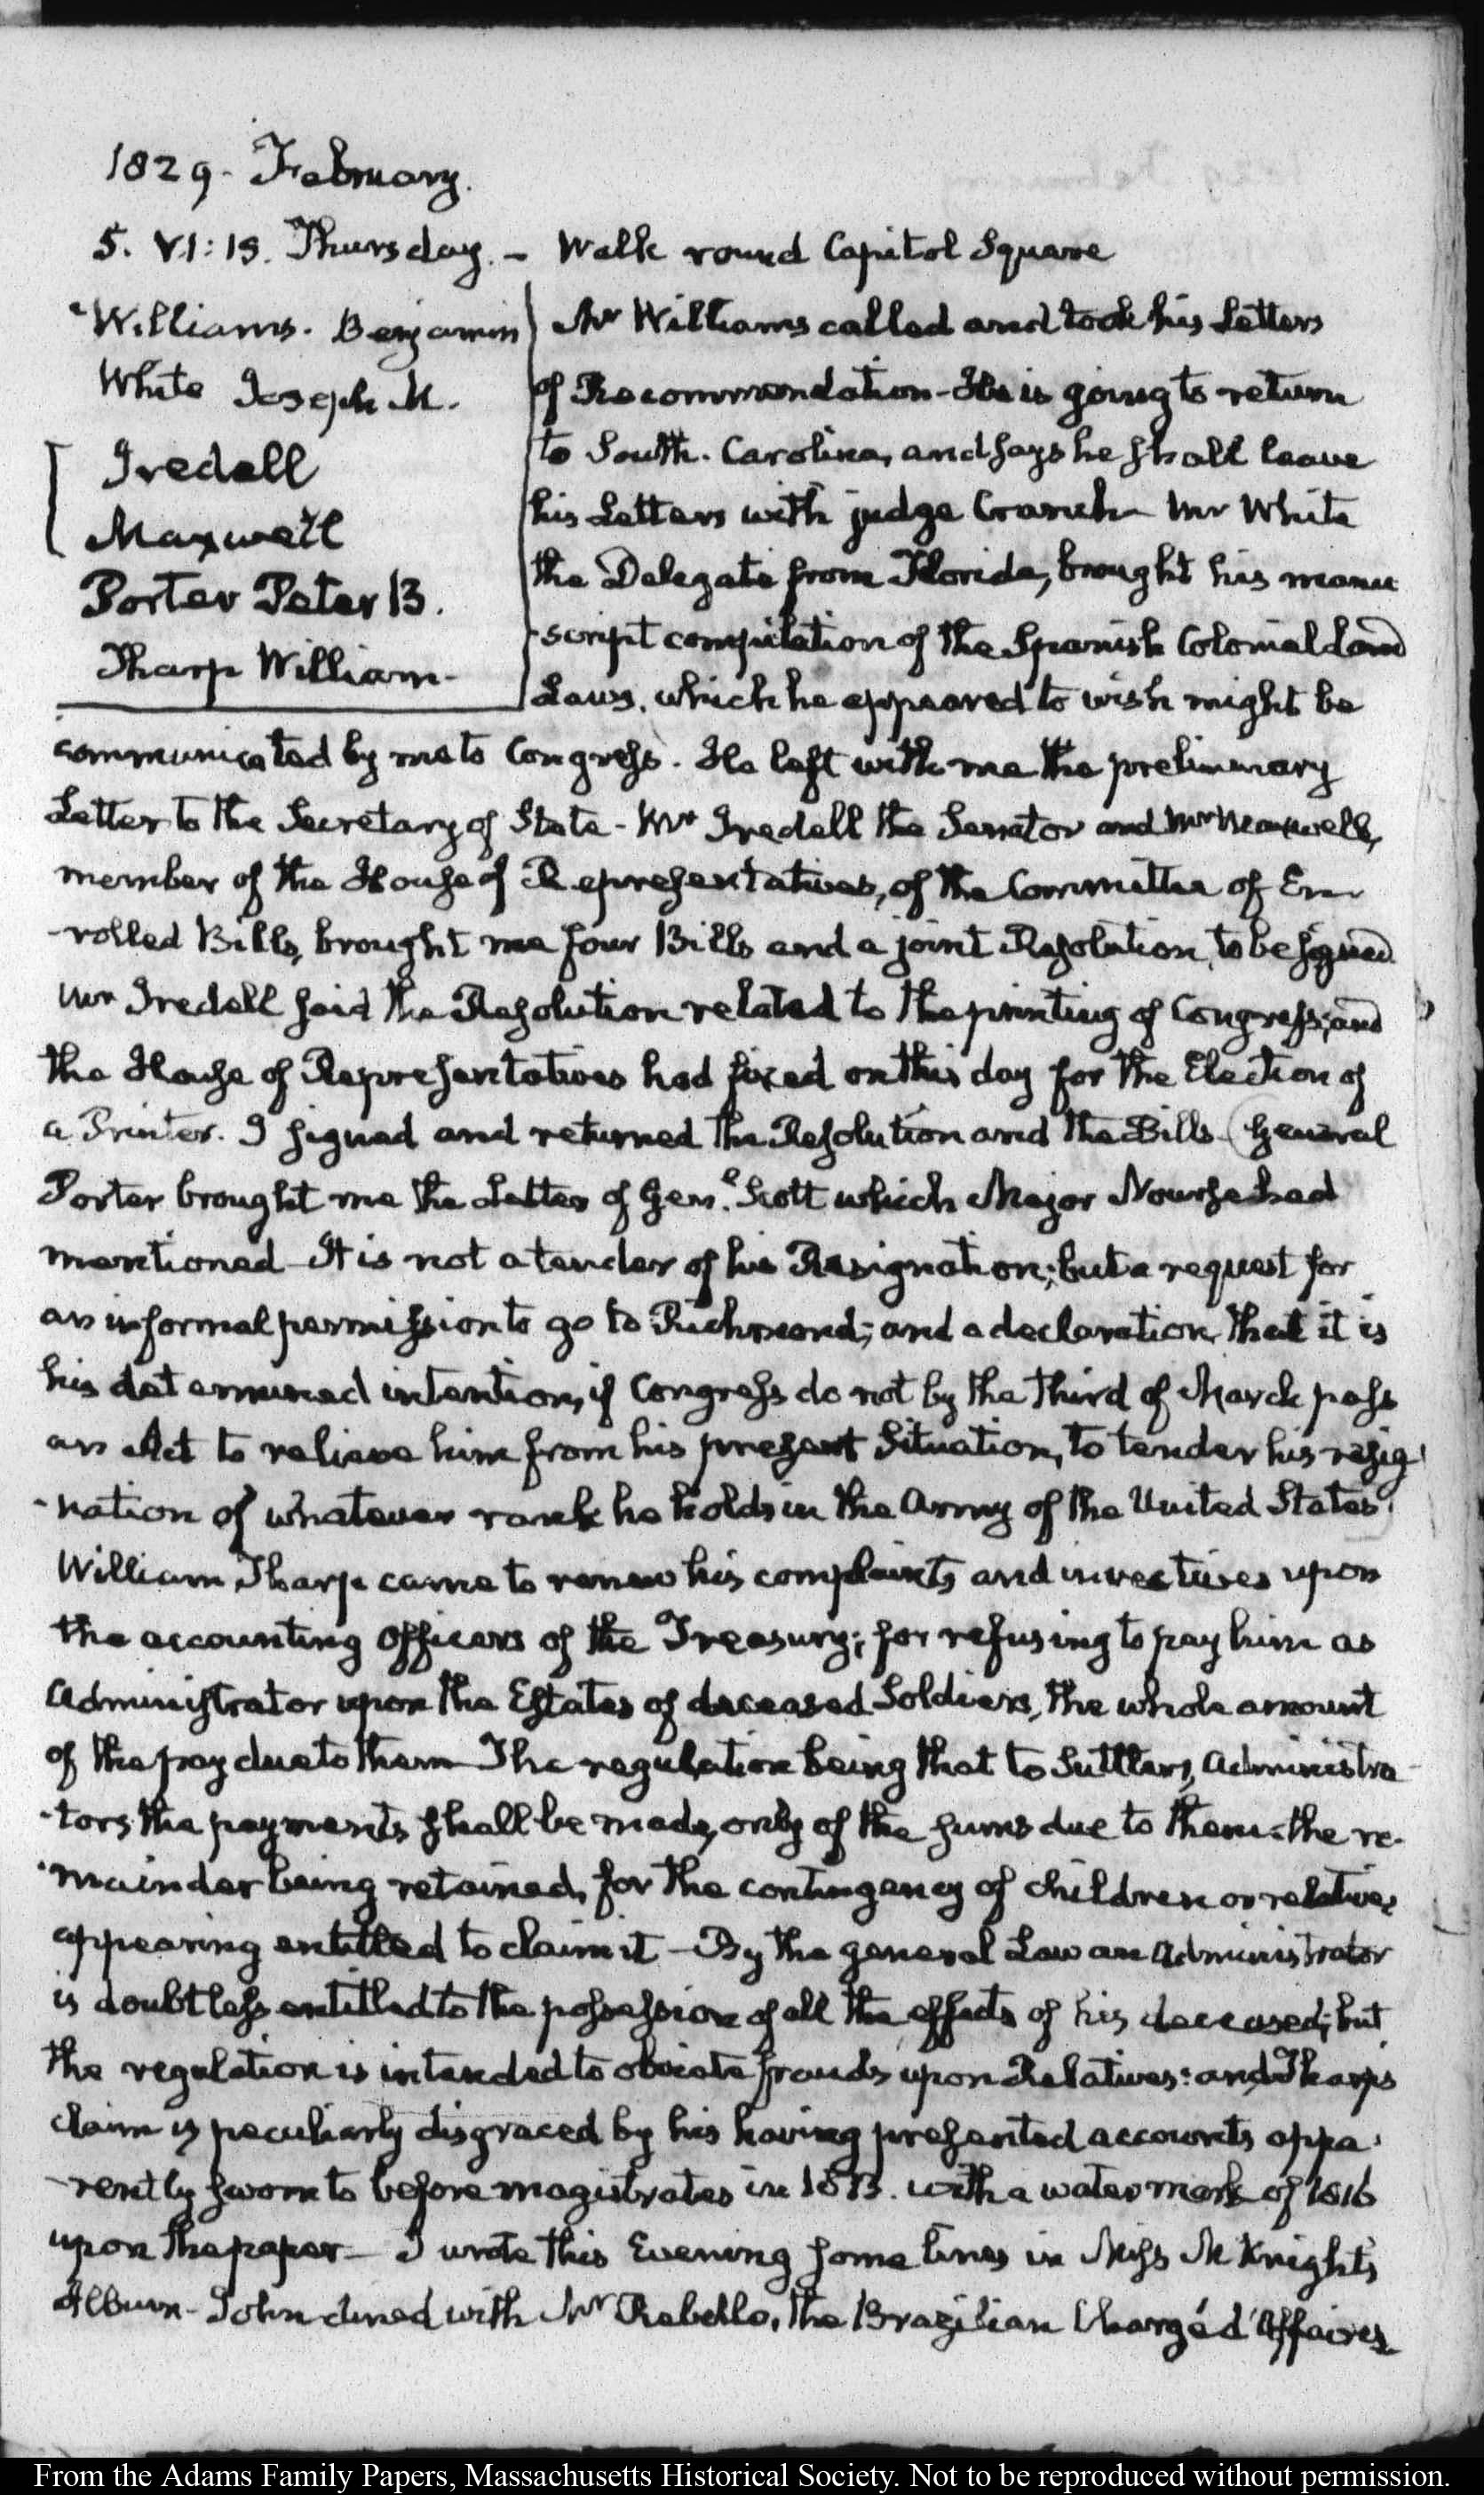 1829. February.
5. VI:15. Thursday. - Walk round Capitol Square
Williams. Benjamin
White Joseph M.
Iredell
Maxwell
Porter Peter B.
Tharp William.
Mr Williams called and took his Letters
of Recommendation - He is going to return
to South. Carolina, and says he shall leave
his Letters with judge Cranch - Mr White
the Delegate from Florida, brought his manu
-script compilation of the Spanish Colonial Land
Laws, which he appeared to wish might be
communicated by me to Congress. He left with me the preliminary
Letter to the Secretary of State - Mr Iredell the Senator and Mr Maxwell,
member of the House of Representatives, of the Committee of En-
-rolled Bills, brought me four Bills and a joint Resolution, to be signed.
Mr Iredell said the Resolution related to the printing of Congress; and
the House of Representatives had fixed on this day for the Election of
a Printer. I signed and returned the Resolution and the Bills - General
Porter brought me the Letter of Genl. Scott which Major Nourse had
mentioned - It is not a tender of his Resignation; but a request for
an informal permission to go to Richmond; and a declaration that it is
his determined intention, if Congress do not by the third of March pass
an Act to relieve him from his present Situation, to tender his resig
-nation of whatever rank he holds in the Army of the United States.
William Tharp came to renew his complaints and invectives upon
the accounting Officers of the Treasury; for refusing to pay him as
Administrator upon the Estates of deceased Soldiers, the whole amount
of the pay due to them - The regulation being that to Suttlers, Administra-
-tors the payments shall be made, only of the sums due to them - the re-
-mainder being retained, for the contingency of children or relatives
appearing entitled to claim it - By the general Law an Administrator
is doubtless entitled to the possession of all the effects of his deceased; but
the regulation is intended to obviate frauds upon Relatives: and Tharp's
claim is peculiarly disgraced by his having presented accounts appa-
-rently sworn to before magistrates in 1813. with a water mark of 1816
upon the paper - I wrote this Evening some lines in Miss McKnight's
Album - John dined with Mr Rebello, the Brazilian Chargé d'Affaires
From the Adams Family Papers, Massachusetts Historical Society. Not to be reproduced without permission.